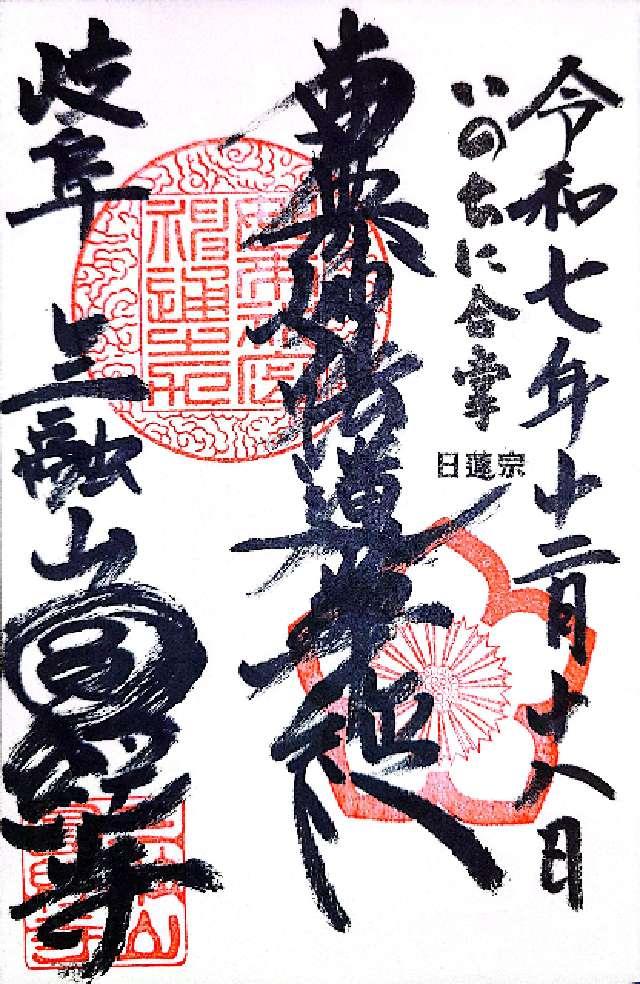 令和七年十二月十八日
いのちに合掌
日蓮宗
南無妙法蓮華経
岐阜 三融山
寺